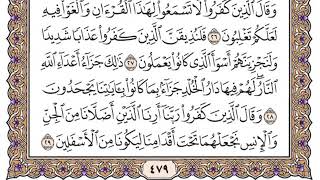 وَقَالَ ٱلَّذِينَ كَفَرُوا۟ لَا تَسْمَعُوا۟ لِهَٰذَا ٱلْقُرْءَانِ وَٱلْغَوْا۟ فِيهِ
لَعَلَّكُمْ تَغْلِبُونَ ٢٦ فَلَنُذِيقَنَّ ٱلَّذِينَ كَفَرُوا۟ عَذَابًا شَدِيدًا
وَلَنَجْزِيَنَّهُمْ أَسْوَأَ ٱلَّذِى كَانُوا۟ يَعْمَلُونَ ٢٧ ذَٰلِكَ جَزَآءُ أَعْدَآءِ ٱللَّهِ
ٱلنَّارُ لَهُمْ فِيهَا دَارُ ٱلْخُلْدِ جَزَآءًۢ بِمَا كَانُوا۟ بِـَٔايَٰتِنَا يَجْحَدُونَ
٢٨ وَقَالَ ٱلَّذِينَ كَفَرُوا۟ رَبَّنَآ أَرِنَا ٱلَّذَيْنِ أَضَلَّانَا مِنَ ٱلْجِنِّ
وَٱلْإِنسِ نَجْعَلْهُمَا تَحْتَ أَقْدَامِنَا لِيَكُونَا مِنَ ٱلْأَسْفَلِينَ ٢٩
٤٧٩